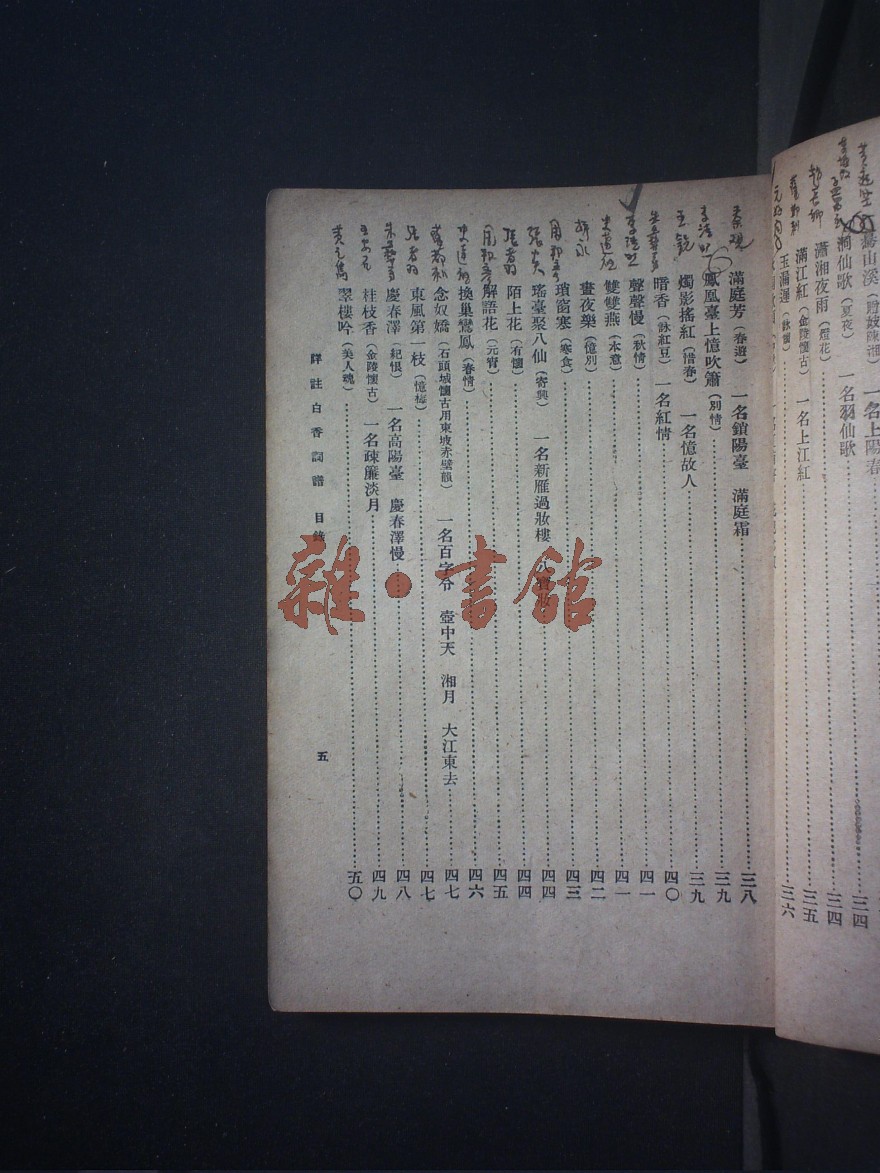 驀山溪 一名上陽春 三四
洞仙歌（夏夜） 一名羽仙歌 三四
瀟湘夜雨（燈花） 三五
滿江紅（金陵懷古） 一名上江紅 三五
玉漏遲（詠懷） 三六
秦觀
滿庭芳（春遊） 一名鎖陽臺 滿庭霜 三八
李清照
鳳凰臺上憶吹簫（別情） 三九
王詵
燭影搖紅（惜春） 一名憶故人 三九
朱彝尊
暗香（詠紅豆） 一名紅情 四〇
李清照
聲聲慢（秋情） 四一
史達祖
雙雙燕（本意） 四一
柳永
晝夜樂（憶別） 四二
周邦彥
瑣窗寒（寒食） 四三
張炎
瑤臺聚八仙（寄興） 一名新雁過妝樓 四四
張翥
陌上花（有懷） 四四
周邦彥
解語花（元宵） 四五
史達祖
換巢鸞鳳（春情） 四六
薩都剌
念奴嬌（石頭城懷古用東坡赤壁韻） 一名百字令 壺中天 湘月 大江東去 四七
張翥
東風第一枝（憶梅） 四七
朱彝尊
慶春澤（紀恨） 一名高陽臺 慶春澤慢 四八
王安石
桂枝香（金陵懷古） 一名疎簾淡月 四九
黃之雋
翠樓吟（美人魂） 五〇
詳註白香詞譜 目錄 五
雜·書館